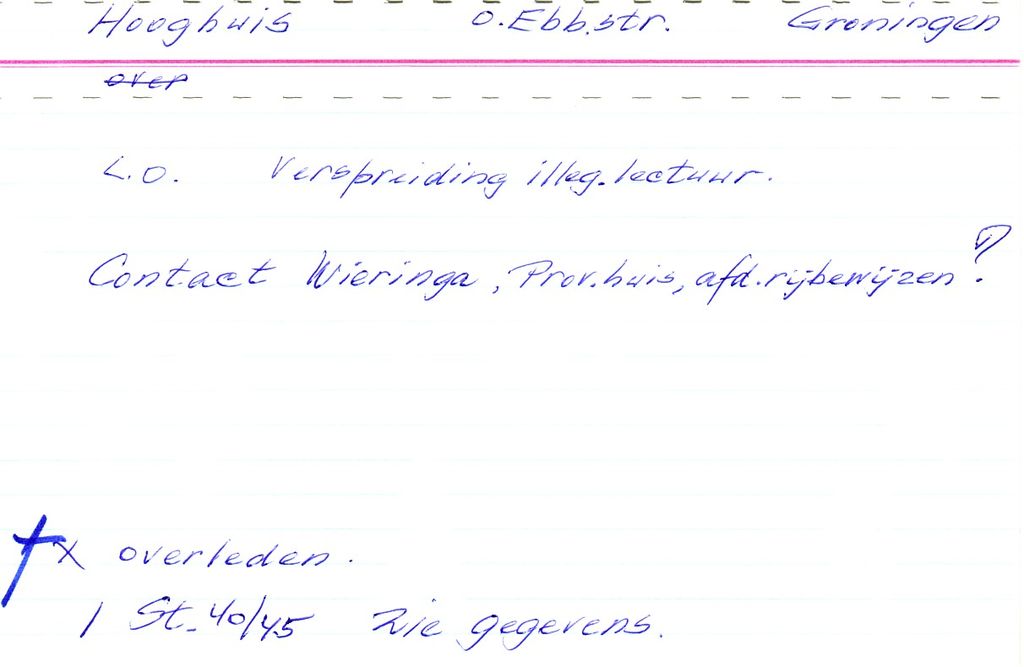 Hooghuis O.Ebb.str. Groningen
over
L.O. Verspreiding illeg.lectuur.
Contact Wieringa, Prov.huis, afd.rijbewijzen?
† x overleden.
/ St. 40/45 Zie gegevens.